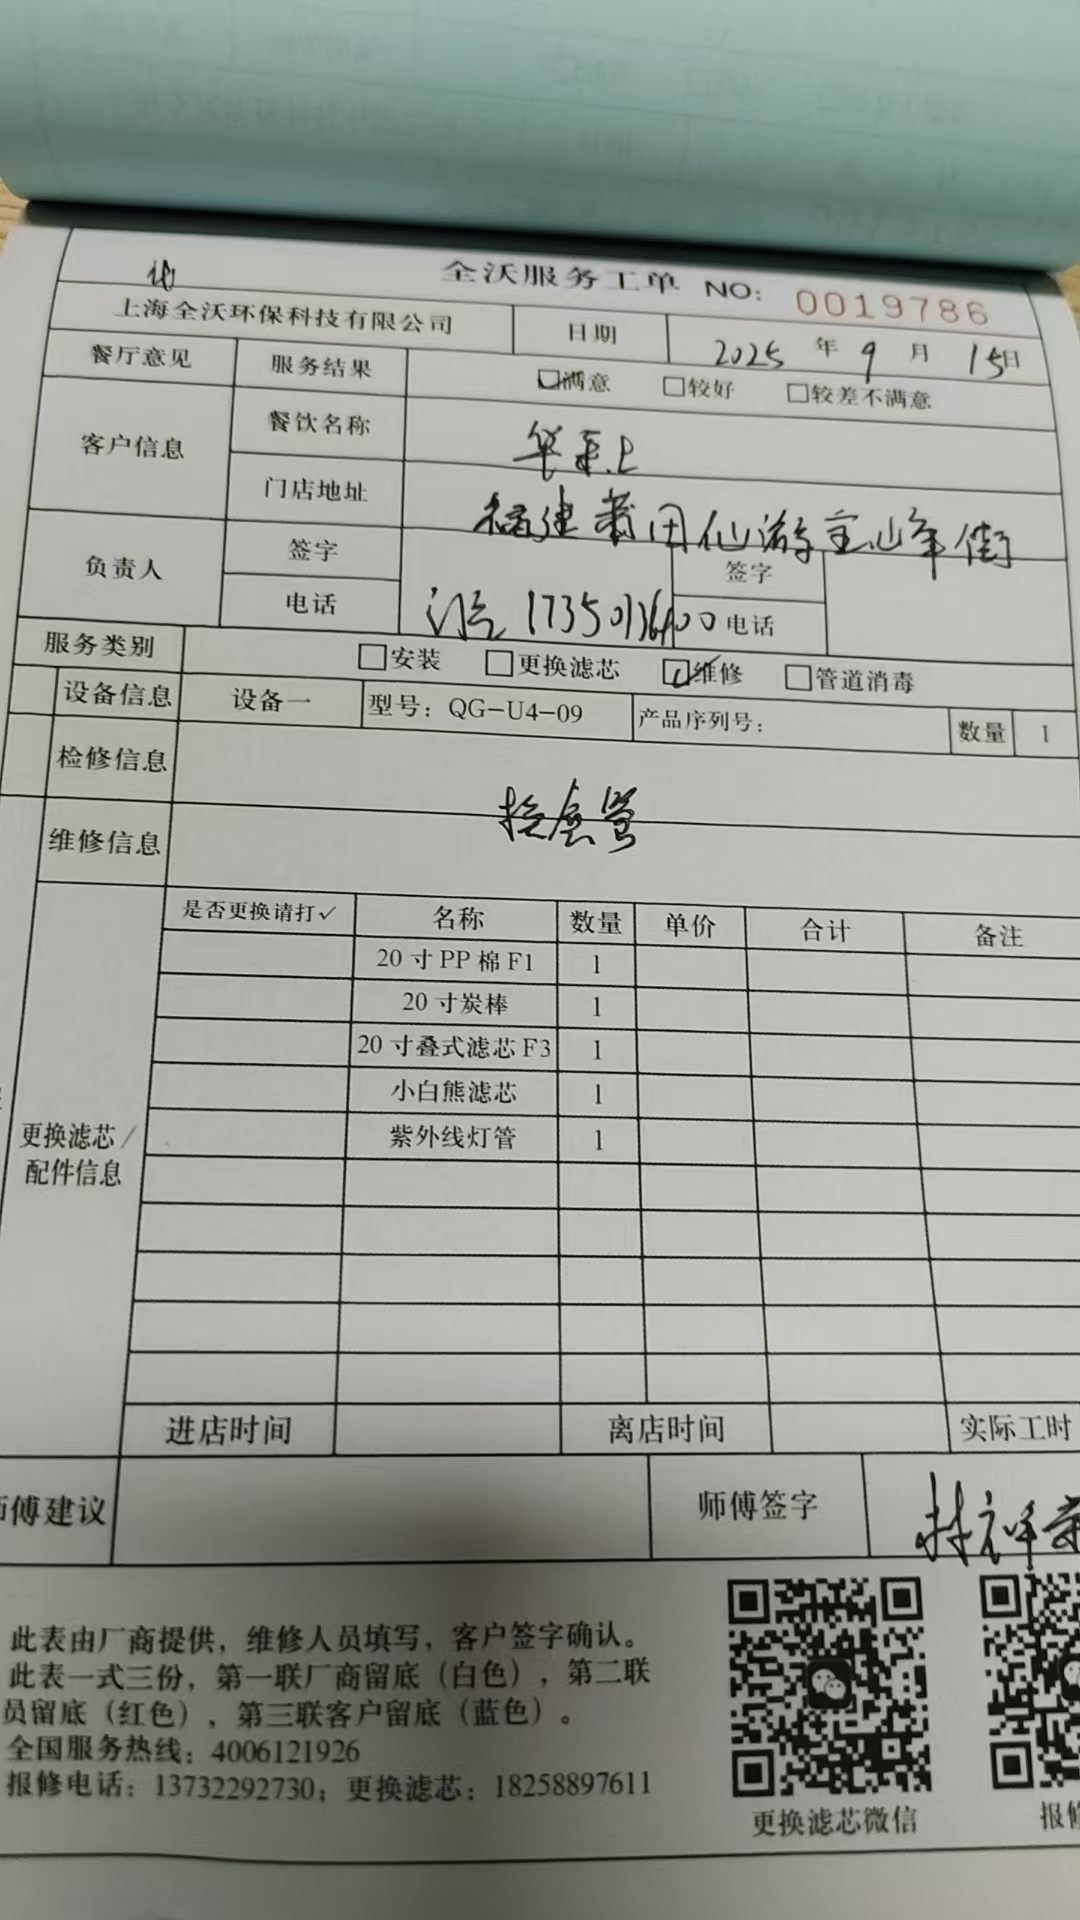 全沃服务工单 NO: 0019786
上海全沃环保科技有限公司 日期 2025 年 9 月 15日
餐厅意见 服务结果 满意 较好 较差不满意
客户信息 餐饮名称 华莱士
门店地址 福建莆田仙游宝峰街
负责人 签字 签字
电话 17350136100 电话
服务类别 安装 更换滤芯 维修 管道消毒
设备信息 设备一 型号: QG-U4-09 产品序列号: 数量 1
检修信息
维修信息
是否更换请打✓ 名称 数量 单价 合计 备注
20寸PP棉F1 1
20寸炭棒 1
20寸叠式滤芯F3 1
小白熊滤芯 1
紫外线灯管 1
更换滤芯/
配件信息
进店时间 离店时间 实际工时
师傅建议 师傅签字
此表由厂商提供，维修人员填写，客户签字确认。
此表一式三份，第一联厂商留底（白色），第二联
员留底（红色），第三联客户留底（蓝色）。
全国服务热线：4006121926
报修电话：13732292730；更换滤芯：18258897611
更换滤芯微信 报修